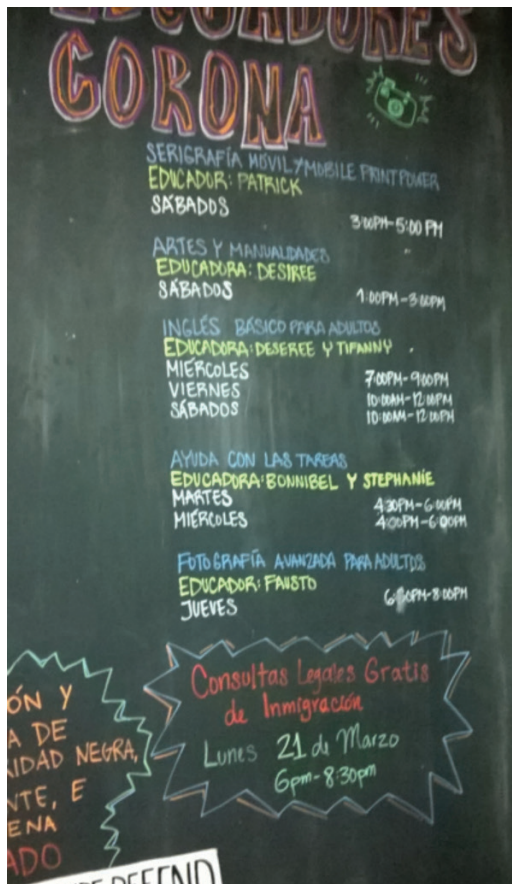 EDUCADORES
CORONA
SERIGRAFÍA MÓVIL/MOBILE PRINT POWER
EDUCADOR: PATRICK
SÁBADOS 3:00PM-5:00 PM
ARTES Y MANUALIDADES
EDUCADORA: DESIREE
SÁBADOS 1:00PM-3:00PM
INGLÉS BÁSICO PARA ADULTOS
EDUCADORA: DESEREE Y TIFANNY
MIÉRCOLES 7:00PM-9:00PM
VIERNES 10:00AM-12:00PM
SÁBADOS 10:00AM-12:00PM
AYUDA CON LAS TAREAS
EDUCADORA: BONNIBEL Y STEPHANIE
MARTES 4:30PM-6:00PM
MIÉRCOLES 4:00PM-6:00PM
FOTOGRAFÍA AVANZADA PARA ADULTOS
EDUCADOR: FAUSTO
JUEVES -8:00PM
Consultas Legales Gratis
de Inmigración
Lunes 21 de Marzo
6pm-8:30pm
ÓN Y
A DE
IDAD NEGRA,
NTE, E
ENA
ADO
DEFEND